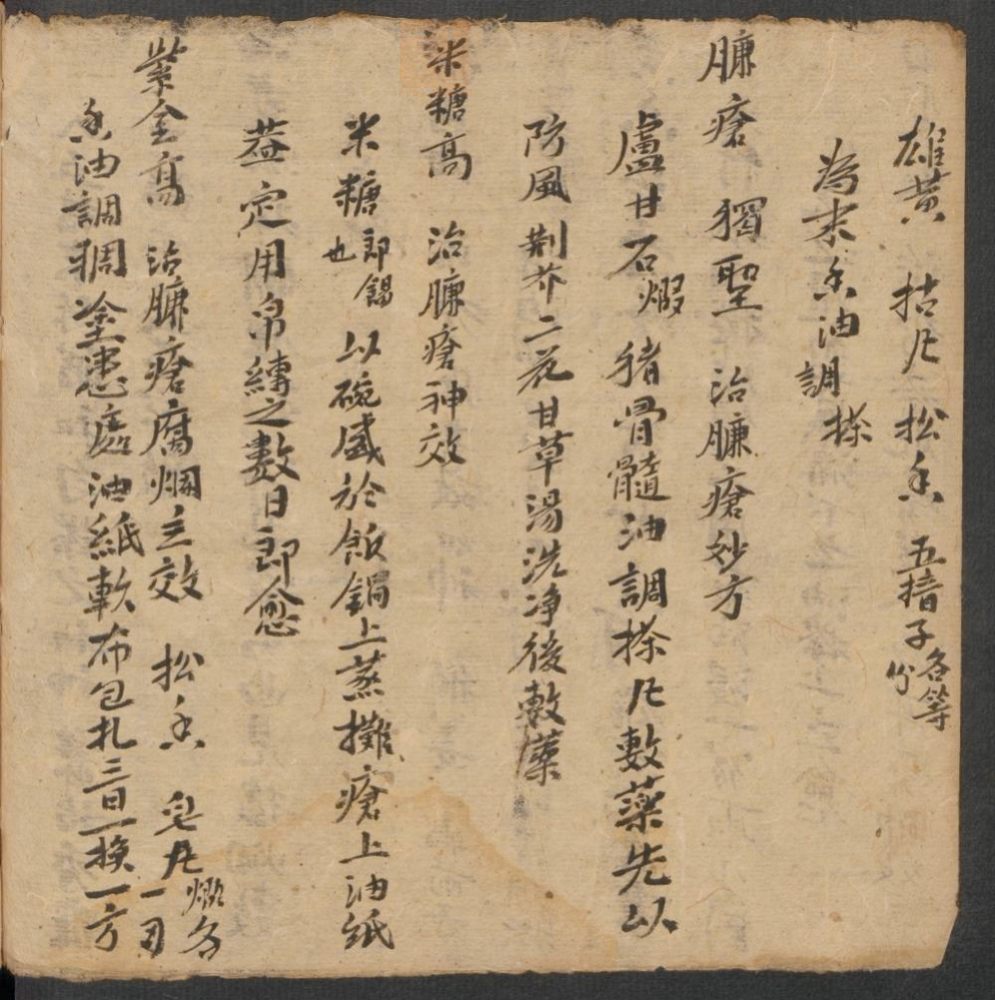 雄黃 枯凡 松香 五掊子各等份
為末香油調搽
臁瘡 獨聖 治臁瘡妙方
盧甘石煆 豬骨髓油調搽凡敷藥先以
防風荆芥二花甘草湯洗净後敷藥
米糖高 治臁瘡神效
米糖即餳也 以碗盛於飯鍋上蒸攤瘡上油紙
葢定用帛縳之數日即愈
紫金高 治臁瘡腐爛立效 松香 皂凡煆各一刄
香油調稠塗患處油紙軟布包扎三日一換一方